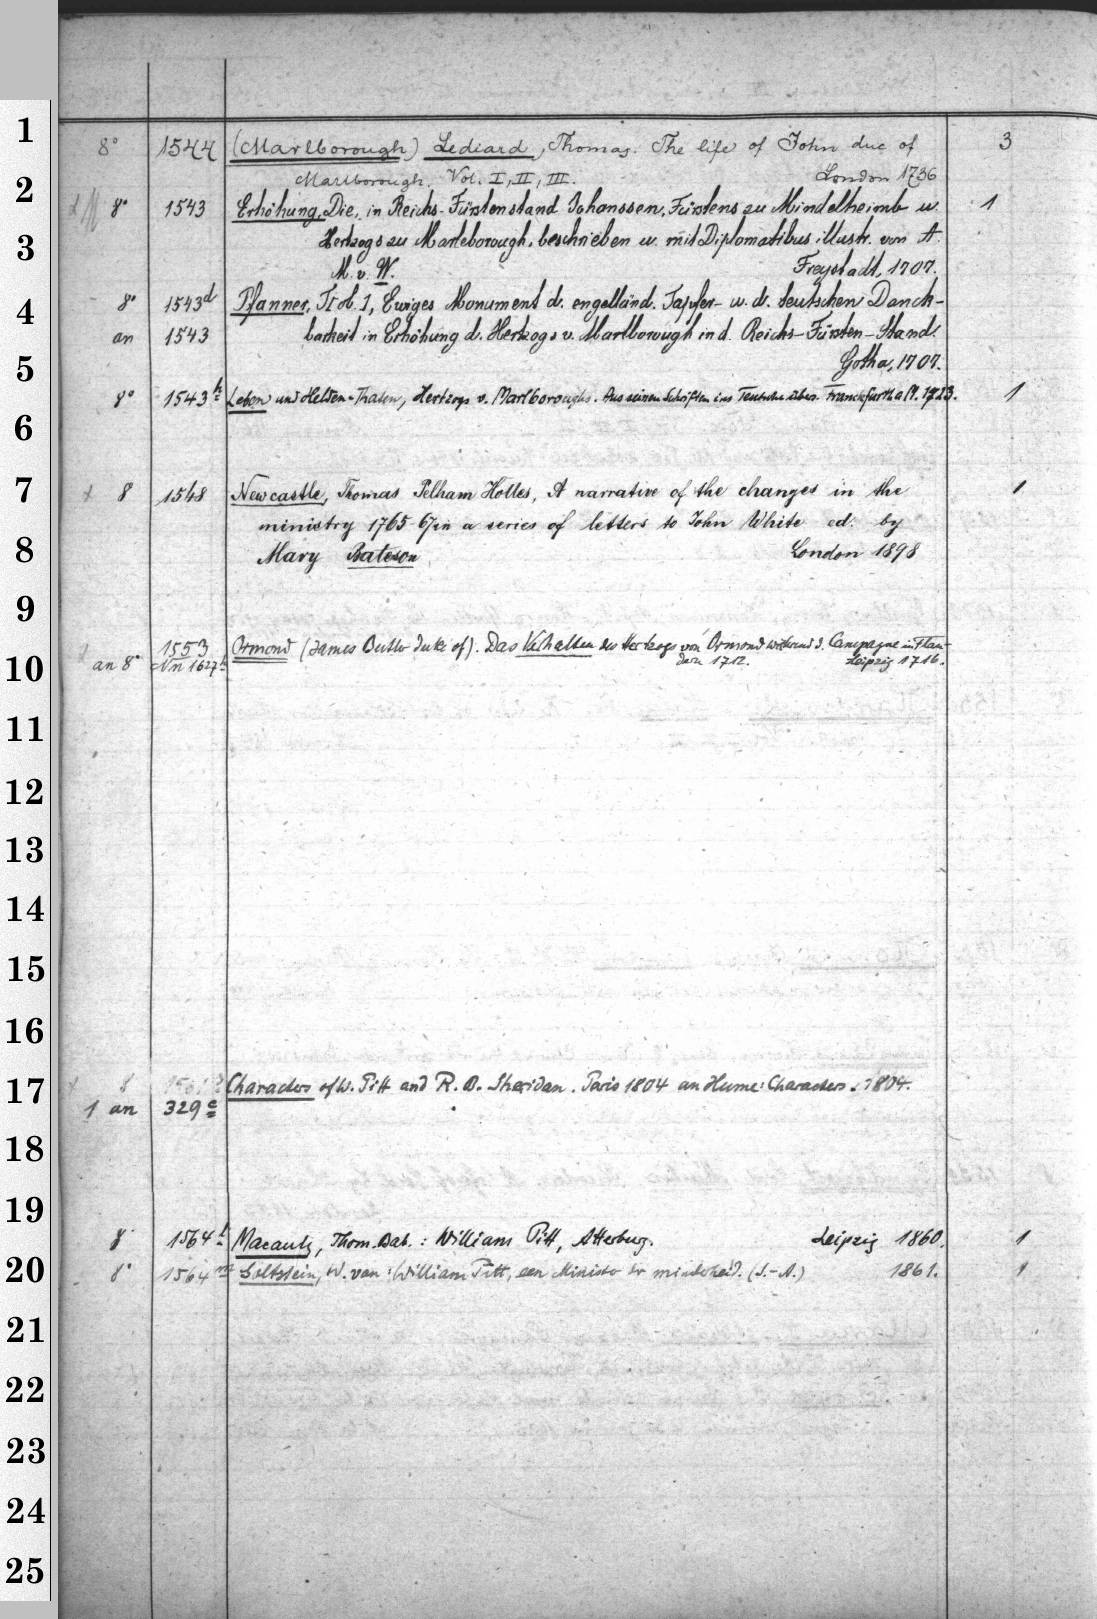 1
8° 1544 (Marlborough) Lediard, Thomas. The life of John duc of 3
2
Marlborough. Vol. I, II, III. London 1736
8° 1543 Erhöhung, Die, in Reichs-Fürstenstand Johanssen, Fürstens zu Mindelheimb u. 1
3
Hertzogs zu Marleborough, beschrieben u. mit Diplomatibus illustr. von A.
M. v. W. Freystadt, 1707.
4
8° 1543d Pfanner, Tob. I, Ewiges Monument d. engelländ. Tapfer- u. d. teutschen Danck-
an 1543 barkeit in Erhöhung d. Hertzogs v. Marlborough in d. Reichs-Fürsten-Stand.
5
Gotha, 1707.
8° 1543h Leben und Helden-Thaten, Hertzogs v. Marlboroughs. Aus seinen Schriften ins Teutsche übers. Franckfurth a M. 1723. 1
6
7
+ 8 1548 Newcastle, Thomas Pelham Holles, A narrative of the changes in the 1
ministry 1765-67 in a series of letters to John White ed. by
8
Mary Bateson London 1898
9
1553 Ormond (James Butler duke of). Das Verhalten des Hertzogs von Ormond während d. Campagne in Flan-
10
an 8° Nn 1627h dern 1712. Leipzig 1716.
11
12
13
14
15
16
17
8 Characters of W. Pitt and R. B. Sheridan. Paris 1804 an Hume: Characters. 1804.
1 an 329c
18
19
8° 1564l Macauly, Thom. Bab.: William Pitt, Atterburg. Leipzig 1860. 1
20
8° 1564m Goltstein, W. van: William Pitt, een Minister der minderheid. (S.-A.) 1861. 1
21
22
23
24
25